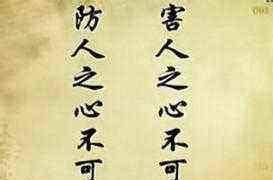 害人之心不可
防人之心不可